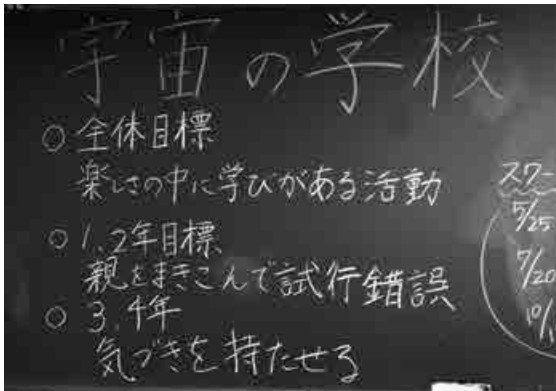 宇宙の学校
○ 全体目標
楽しさの中に学びがある活動
○ 1.2年目標
親をまきこんで試行錯誤
○ 3.4年
気づきを持たせる
スクー
5/25
7/20
10/